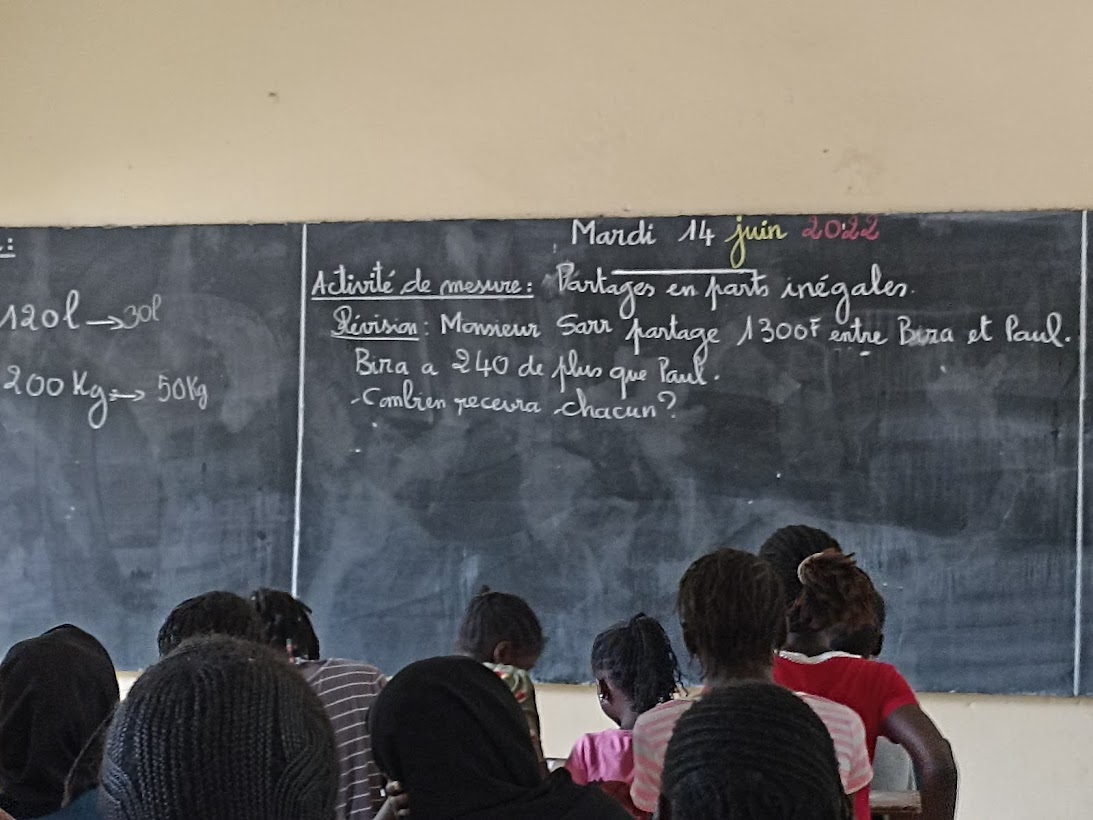 120l → 30l
200 Kg → 50Kg
Mardi 14 juin 2022
Activité de mesure : Partages en parts inégales.
Révision : Monsieur Sarr partage 1300F entre Bira et Paul.
Bira a 240 de plus que Paul.
-Combien recevra chacun?